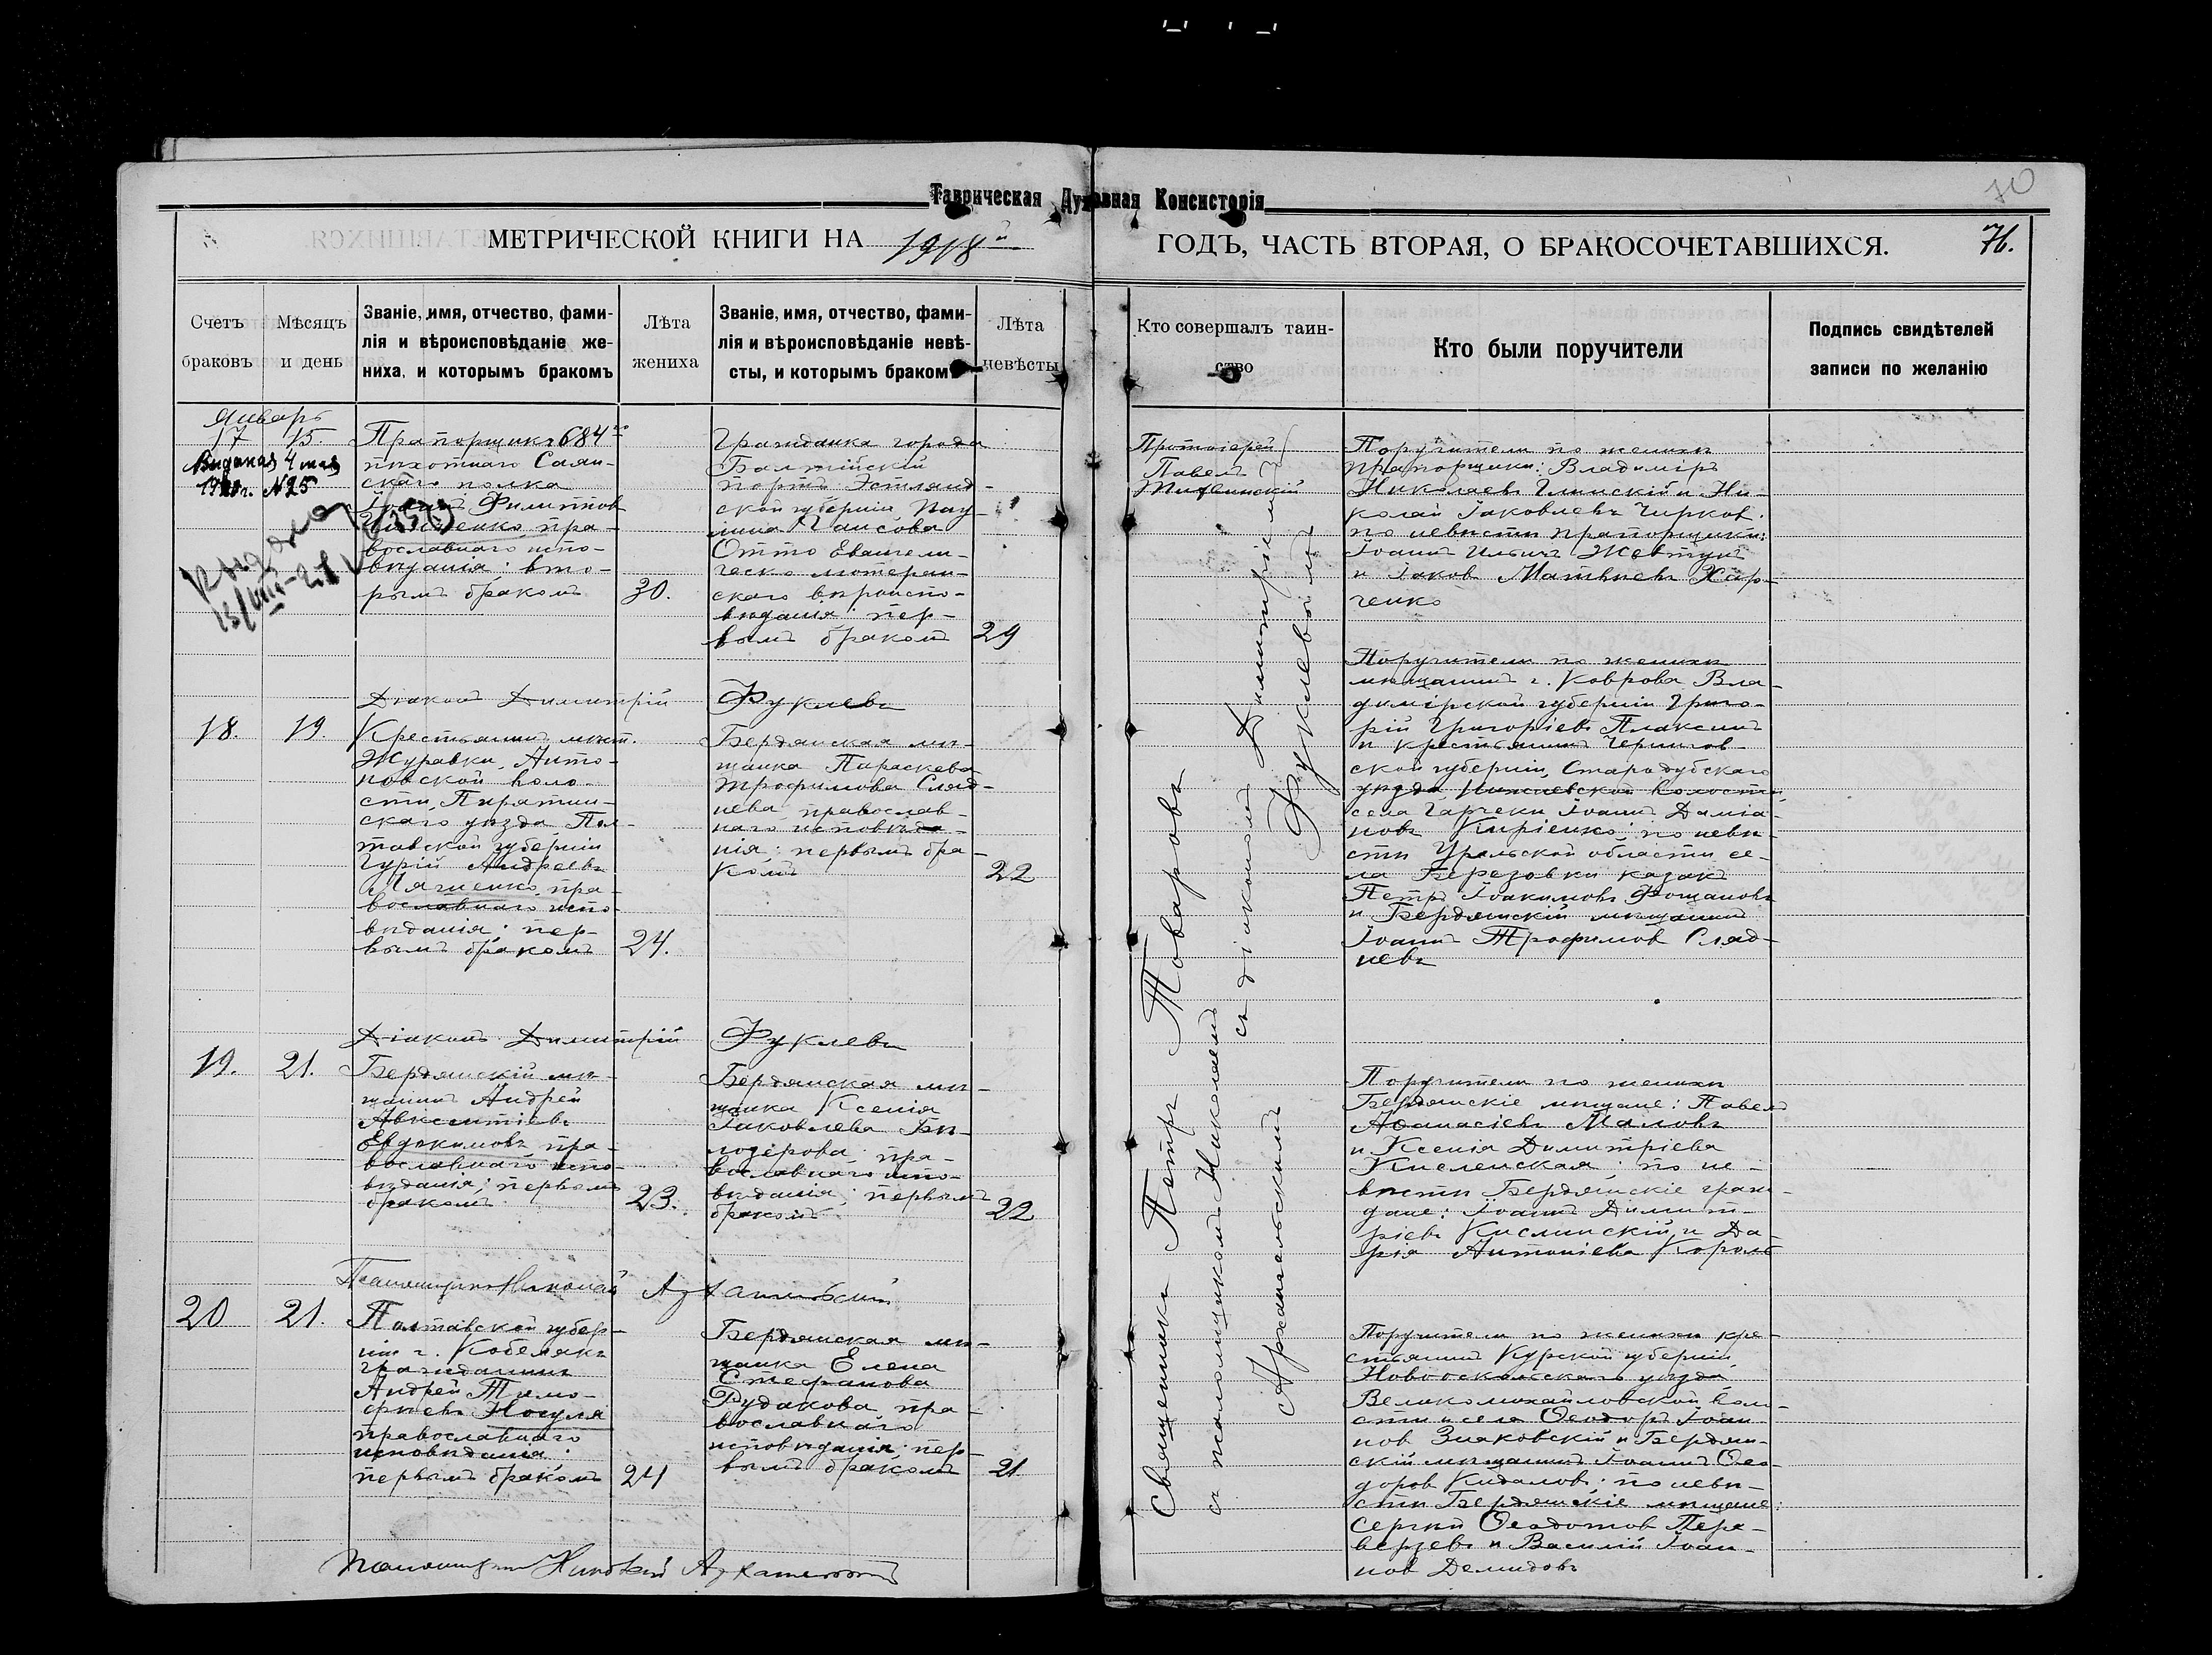 Таврическая Духовная Консисторія
70
МЕТРИЧЕСКОЙ КНИГИ НА 1918й ГОДЪ, ЧАСТЬ ВТОРАЯ, О БРАКОСОЧЕТАВШИХСЯ. 76.
Счетъ браковъ
Мѣсяцъ и день
Званіе, имя, отчество, фами-
лія и вѣроисповѣданіе же-
ниха, и которымъ бракомъ
Лѣта жениха
Званіе, имя, отчество, фами-
лія и вѣроисповѣданіе невѣ-
сты, и которымъ бракомъ
Лѣта невѣсты
Кто совершалъ таин-
ство
Кто были поручители
Подпись свидѣтелей
записи по желанію
Январь
17 15.
4 мая
№25
Прапорщикъ 684го
пѣхотнаго
скаго полка
Іоаннъ Филиппов
пра-
вославнаго испо-
вѣданія; вто-
рымъ бракомъ
30.
Гражданка города
Балтійскій
портъ Эстлянд-
ской губерніи Пау-
лина Гансова
Отто Евангели-
ческо лютеран-
скаго вѣроиспо-
вѣданія; пер-
вымъ бракомъ
29
Протоіерей
Павелъ
Поручители по женихѣ
прапорщики: Владиміръ
Николаевъ Глинскій и Ни-
колай Іаковлевъ Чирков;
по невѣстѣ прапорщики:
Іоаннъ Ильичъ Жевтунъ
и Іаков Матѳѣевъ Хар-
ченко
Діаконъ Димитрій Фуклевъ
18. 19.
Крестьянинъ мѣст.
Журавки, Анто-
новской воло-
сти, Пирятин-
скаго уѣзда Пол-
тавской губерніи
Гурій Андреевъ
пра-
вославнаго испо-
вѣданія; пер-
вымъ бракомъ
24.
Бердянская мѣ-
щанка Параскева
Трофимова Слад-
нева православ-
наго исповѣда-
нія; первымъ бра-
комъ
22
Поручители по женихѣ
мѣщанинъ г. Коврова Вла-
димірской губерніи Григо-
рій Григоріевъ Плаксинъ
и крестьянинъ Чернигов-
ской губерніи, Стародубскаго
уѣзда волости,
села Іоаннъ Даміа-
новъ Киріенко; по невѣ-
стѣ Уральской области се-
ла Березовки казакъ
Петръ Іоакимовъ
и Бердянскій мѣщанинъ
Іоаннъ Трофимов Слад-
невъ
Діаконъ Димитрій Фуклевъ
19. 21.
Бердянскій мѣ-
щанинъ Андрей
Авксентіевъ
Евдокимовъ пра-
вославнаго испо-
вѣданія; первымъ
бракомъ
23.
Бердянская мѣ-
щанка Ксенія
Іаковлева Бѣ-
лозерова пра-
вославнаго испо-
вѣданія; первымъ
бракомъ
22
Поручители по женихѣ
Бердянскіе мѣщане: Павелъ
Аѳанасіевъ Маловъ
и Ксенія Димитріева
Кисленская; по не-
вѣстѣ Бердянскіе граж-
дане: Іоаннъ Димит-
ріевъ Кислинскій и Да-
рія Антоніева Король
Псаломщикъ Николай
20 21.
Полтавской губер-
ніи г. Кобелякъ
гражданинъ
Андрей Тимо-
фѣевъ Носуля
православнаго
исповѣданія;
первымъ бракомъ
24
Бердянская мѣ-
щанка Елена
Стефанова
Рудакова пра-
вославнаго
исповѣданія; пер-
вымъ бракомъ
21
Поручители по женихѣ кре-
стьянинъ Курской губерніи,
Новооскольскаго уѣзда
Великомихайловской воло-
сти и села Ѳеодоръ Іоан-
нов Знаковскій и Бердян-
скій мѣщанинъ Іоаннъ Ѳео-
доров Кидалов; по невѣ-
стѣ Бердянскіе мѣщане:
Сергѣй Ѳеодотов Пере-
верзевъ и Василій Іоан-
нов Демидовъ
Священникъ Петръ Товаровъ
съ діакономъ Димитріемъ Фуклевымъ
съ псаломщикомъ Николаемъ Архангельскимъ